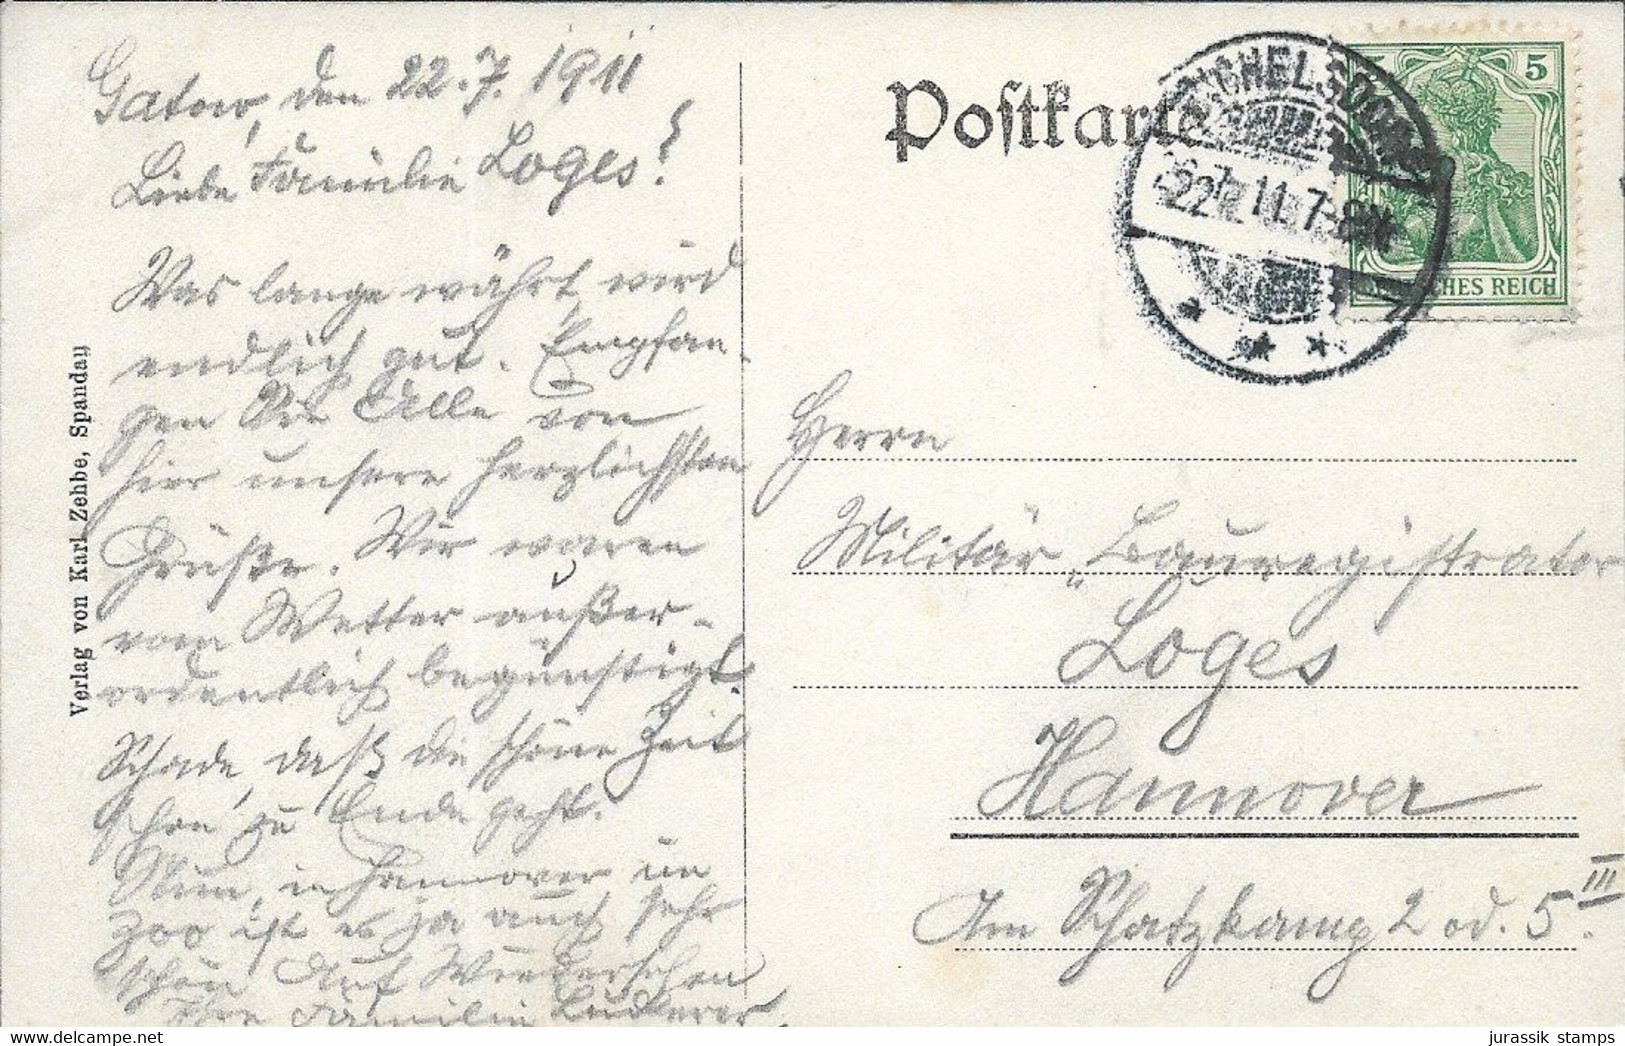 Gatow, den 22.7.1911
Liebe Familie Loges!
Was lange währt, wird
endlich gut. Empfan-
gen Sie Alle von
hier unsere herzlichsten
Grüße. Wir waren
vom Wetter außer-
ordentlich begünstigt.
Schade, daß die schöne Zeit
schon zu Ende geht.
Nun, in Hannover im
Zoo ist es ja auch sehr
schön Auf Wiedersehen
Ihre Familie
Verlag von Karl Zehbe, Spandau
Postkarte
PICHELSDORF
22.7.11.7-8N.
5 5
DEUTSCHES REICH
Herrn
Militär-Bauregistrator
Loges
Hannover
Am Schatzkamp 2 od. 5 III.
delcampe.net
jurassik stamps